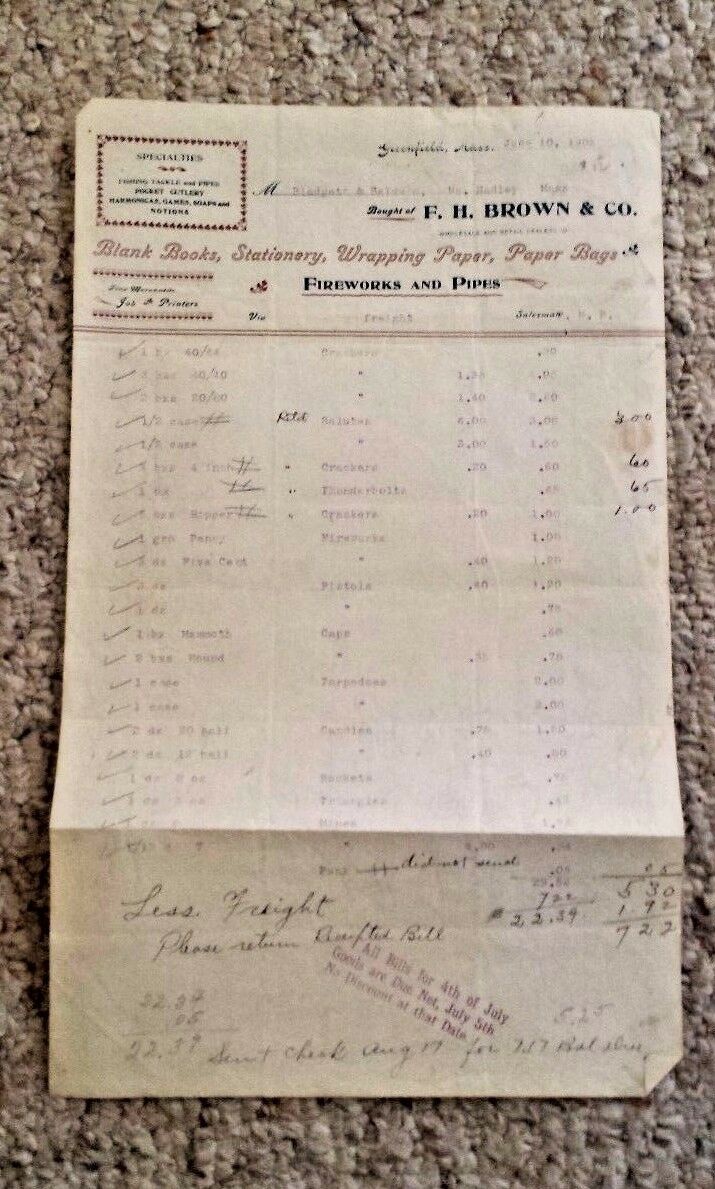 Greenfield, Mass. June 10, 190
SPECIALTIES
FISHING TACKLE and PIPES
POCKET CUTLERY
HARMONICAS, GAMES, SOAPS and
NOTIONS
M Blodgett & Baldwin, No. Hadley Mass
Bought of F. H. BROWN & CO.
WHOLESALE AND RETAIL DEALERS IN
Blank Books, Stationery, Wrapping Paper, Paper Bags
FIREWORKS AND PIPES
Job Printers
Via Freight Salesman,
1 bx 40/64 Crackers
bxs 40/40 "
2 bxs 20/60 " 1.40 2.80
1/2 case Retd Salutes 6.00 3.00 3.00
1/2 case " 3.00 1.50
3 bxs 4 inch " Crackers .20 .60 60
1 bx " Thunderbolts .65 65
5 bxs Hopper " Crackers .20 1.00 1.00
1 gro Penny Fireworks 1.00
3 dz Five Cent " .40 1.20
3 dz Pistols .40 1.20
1 dz " .75
1 bx Mammoth Caps .60
2 bxs Round " .35 .70
1 case Torpedoes 2.00
1 case " 2.00
2 dz 20 ball Candles .75 1.50
2 dz 12 ball " .40 .80
1 dz 2 oz Rockets .75
1 dz Triangles
Mines
"
Punk did not send .05 05
5 30
7 22 1 92
Less Freight $22.39 7 22
Please return Receipted Bill
All Bills for 4th of July
Goods are Due Net, July 5th
No Discount at that Date.
22.34
05 5.25
22.39 Sent check Aug 17 for